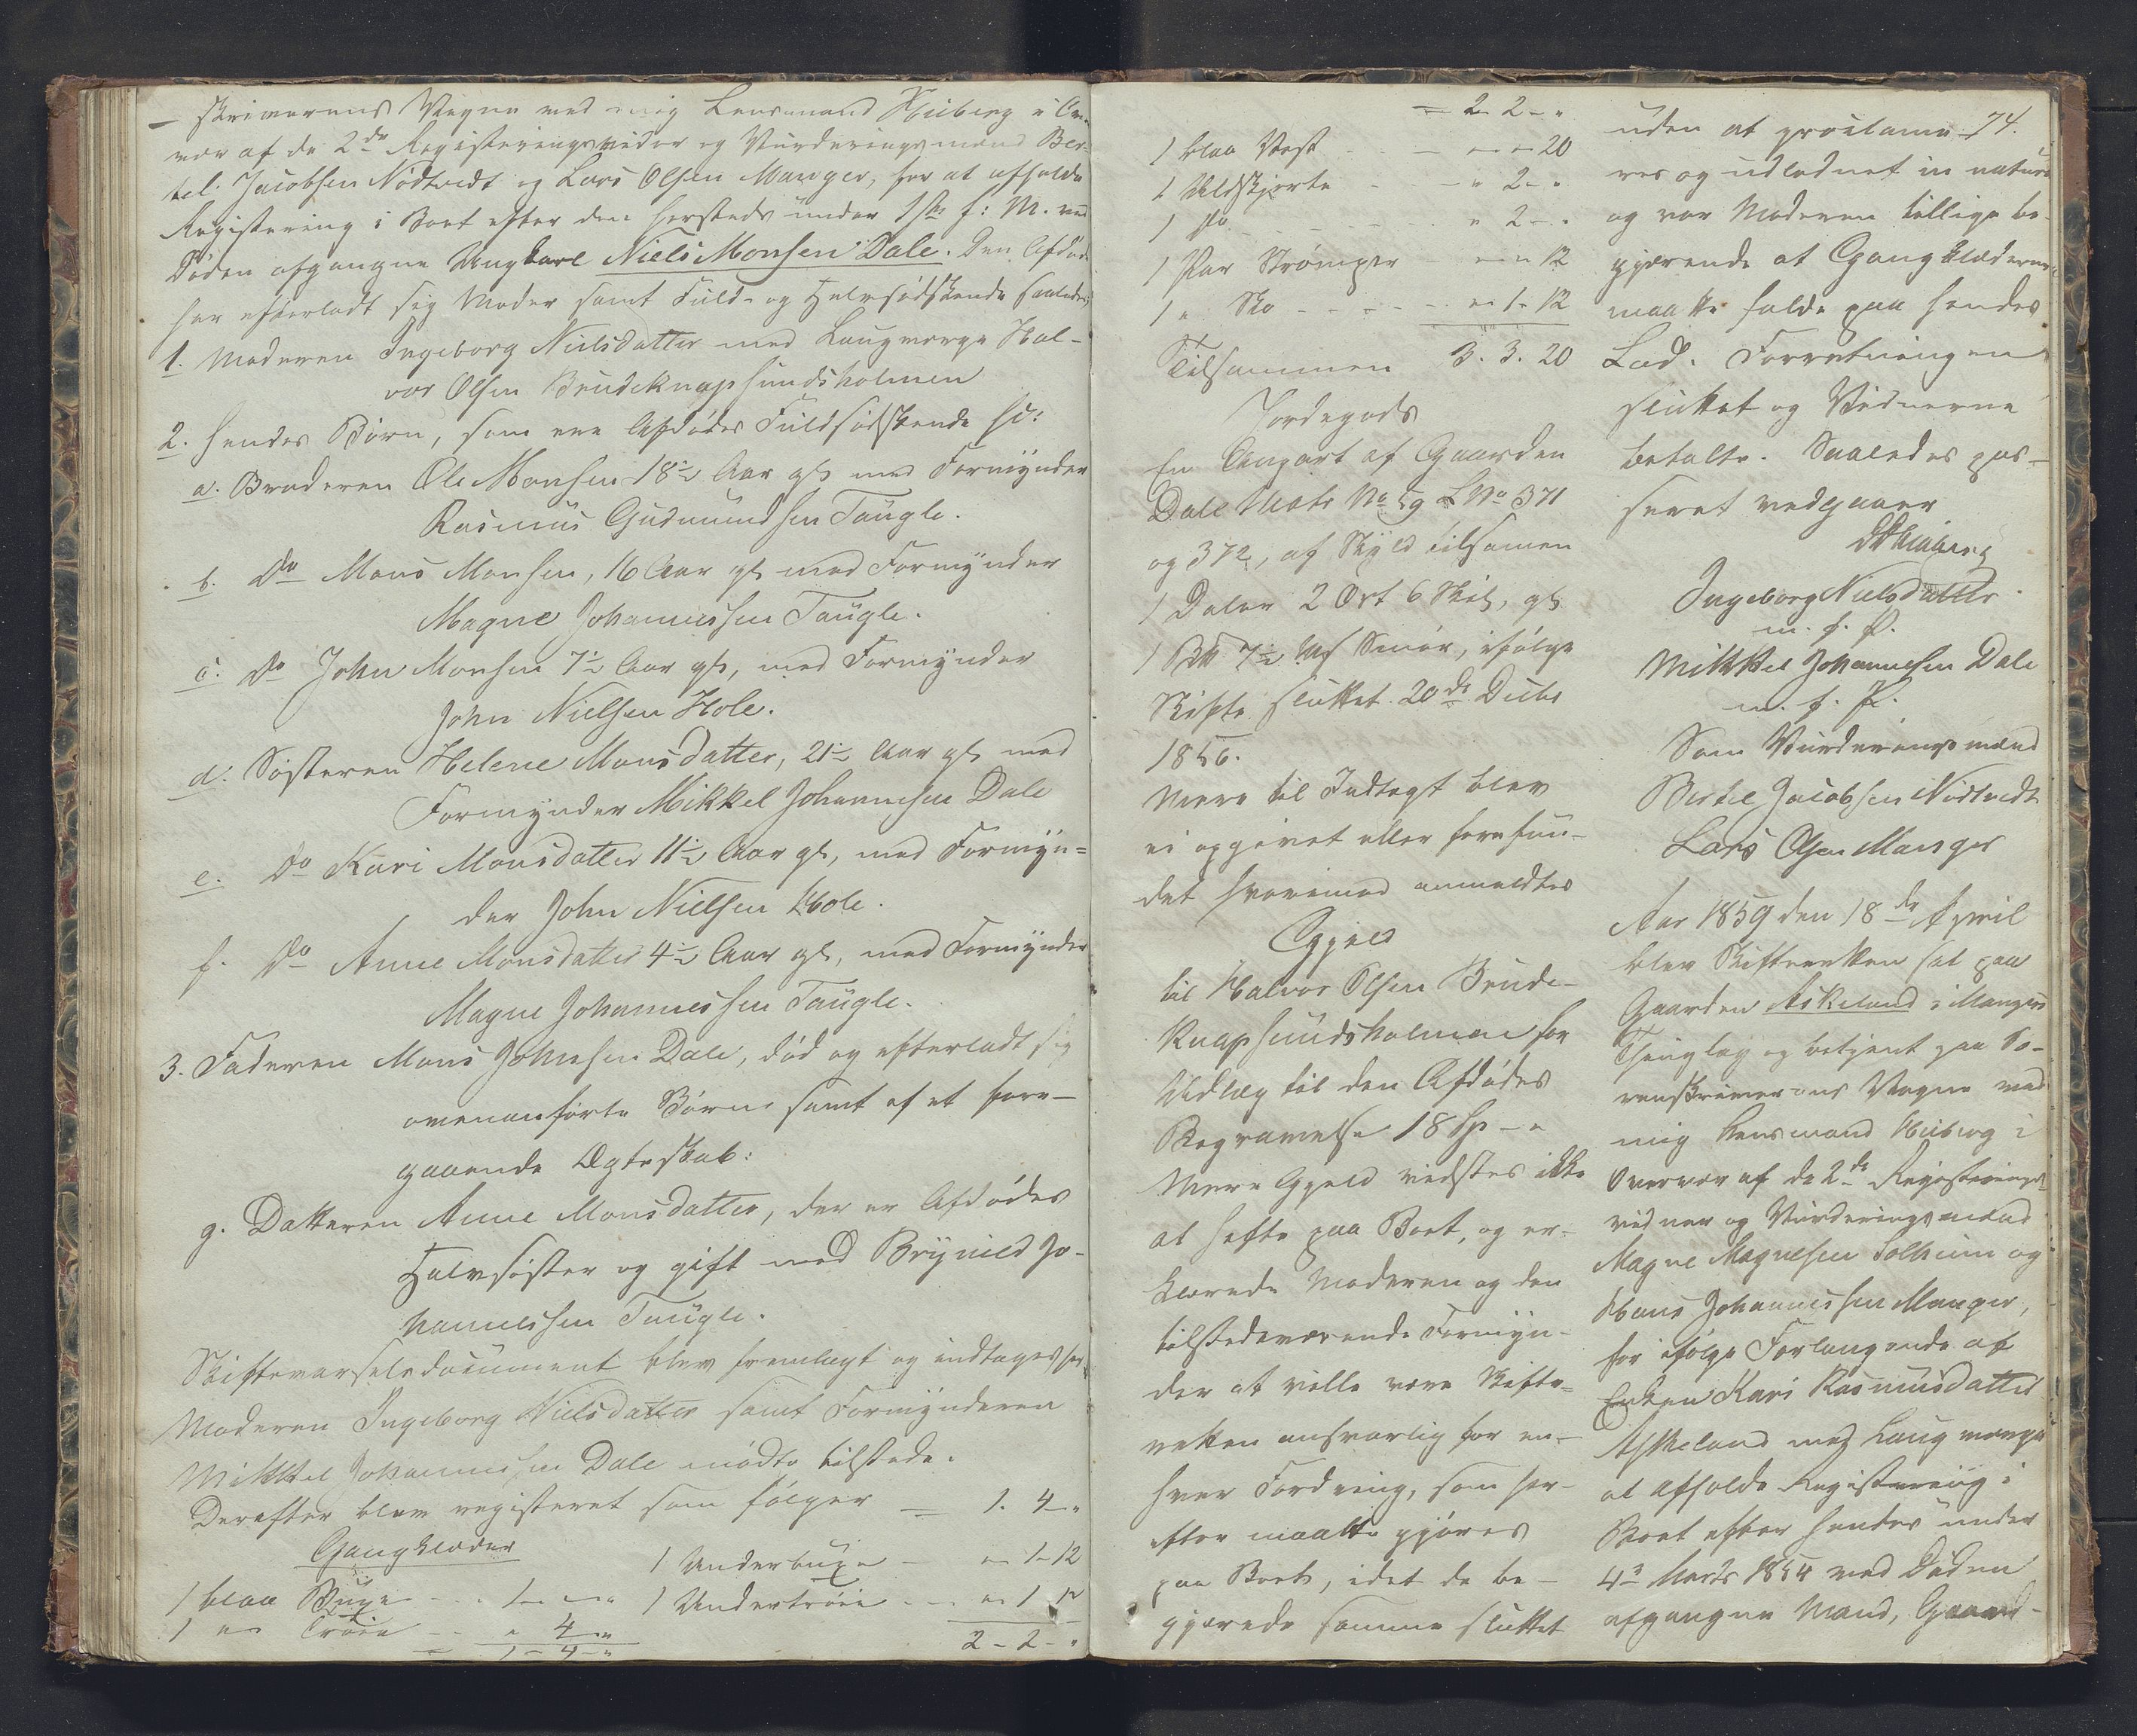 – skriverens Vegne ved mig Lensmand Hiiberg i Over-
vær af de 2de Registeringsvidner og Vurderingsmænd Ber-
tel Jacobsen Nödtvedt og Lars Olsen Manger, for at afholde
Registering i Boet efter den hersteds under 1ste f: M. ved
Døden afgangne Ungkarl Niels Monsen Dale. Den Afdøde
har efterladt sig Moder samt Fuld- og Halvsødskende saaledes,
1. Moderen Ingeborg Nielsdatter med Laugværge Hal-
vor Olsen Brudeknapsundsholmen
2. hendes Børn, som ere Afdødes Fuldsødskende sc:
a. Broderen Ole Monsen 18½ Aar gl. med Formynder
Rasmus Gudmundsen Taugle.
b. do Mons Monsen, 16 Aar gl. med Formynder
Magne Johannessen Taugle.
c. do John Monsen 7½ Aar gl., med Formynder
John Nielsen Hole.
d. Søsteren Helene Monsdatter, 21½ Aar gl. med
Formynder Mikkel Johannesen Dale
e. do Kari Monsdatter 11½ Aar gl., med Formyn=
der John Nielsen Hole.
f. do Anne Monsdatter 4½ Aar gl., med Formynder
Magne Johannessen Taugle.
3. Faderen Mons Johnsen Dale, død og efterladt sig
ovenanførte Børn samt af et fore-
gaaende Ægteskab:
g. Datteren Anne Monsdatter, der er Afdødes
Halvsøster og gift med Brynild Jo-
hannessen Taugle.
Skiftevarselsdocument blev fremlagt og indtages her.
Moderen Ingeborg Nielsdatter samt Formynderen
Mikkel Johannesen Dale mødte tilstede.
Derefter blev registeret som følger
Gangklæder
1 blaa Buxe - - 1 - "
1 " Trøie - - " 4 "
1 - 4 - "
– 1. 4 - "
1 Underbuxe - " 1 - 12
1 Undertrøie - - " 1 12
2 - 2 - "
= 2 2 - "
1 blaa Vest - - - " - 20
1 Uldskjorte - - " 2 - "
1 do - - - - " 2 - "
1 Par Strømper - " " 12
1 " Sko - - - - " 1 - 12
Tilsammen 3. 3. 20
Jordegods
En Anpart af Gaarden
Dale Matr No 59 L No 371
og 372, af Skyld tilsamen
1 Daler 2 Ort 6 Skil, gl.
1 Pd 7½ Mk Smør, ifølge
Skifte sluttet 20de Decbr
1856.
Mere til Indtægt blev
ei opgivet eller forefun-
det hvorimod anmeldtes
Gjæld
til Halvor Olsen Brude-
knapsundsholmen for
Udlæg til den Afdødes
Begravelse 18 Sp - "
Mere Gjæld vidstes ikke
at hefte paa Boet, og er-
klærede Moderen og den
tilstedeværende Formyn-
der at ville være Skifte=
retten ansvarlig for en-
hver Fordring, som her-
efter maatte gjøres
paa Boet, idet de be-
gjærede samme sluttet
74.
uden at proclame-
res og udlodnet in natura
og var Moderen tillige be-
gjærende at Gangklæderne
maatte falde paa hendes
Lod. Forretningen
sluttet og Vidnerne
betalte. Saaledes pas-
seret vedgaaer
Hiiberg
Ingeborg Nielsdatter.
m. f. P.
Mikkel Johannesen Dale
m. f. P.
Som Vurderingsmænd
Bertel Jacobsen Nödtvedt
Lars Olsen Manger
Aar 1859 den 18de April
blev Skifteretten sat paa
Gaarden Askeland i Mangers
Thinglag og betjent paa So-
renskriverens Vegne ved
mig Lensmand Hiiberg i
Overvær af de 2de Registerings-
vidner og Vurderingsmænd
Magne Magnesen Solheim og
Hans Johannessen Manger,
for ifølge Forlangende af
Enken Kari Rasmusdatter
Askeland med Laugværge
at afholde Registerering i
Boet efter hendes under
4de Marts 1854 ved Døden
afgangne Mand, Gaard-